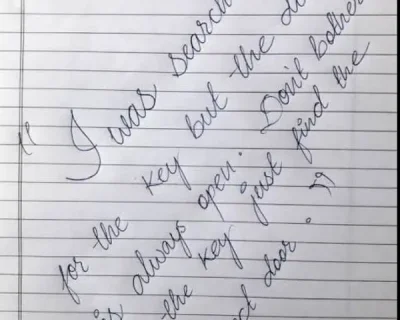 " I was search
for the key but the
is always open. Don't bother
the key just find the
door. "